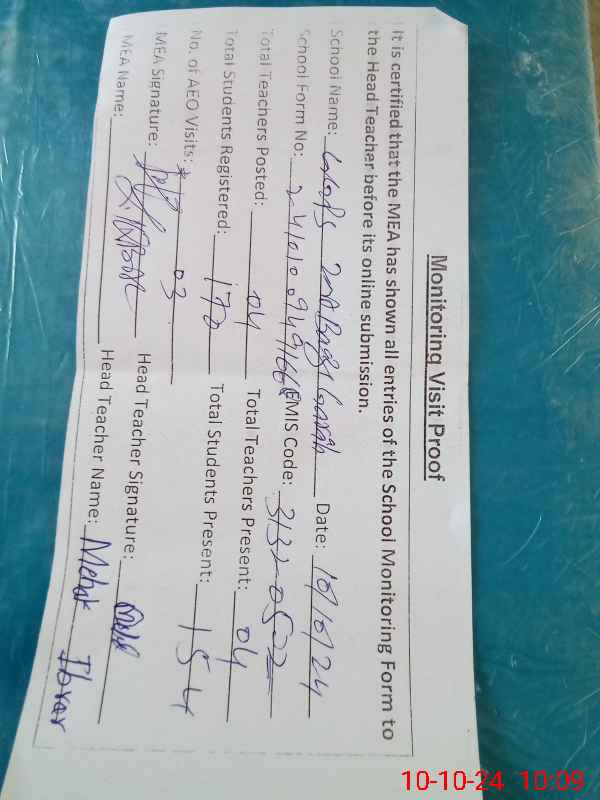 Monitoring Visit Proof
It is certified that the MEA has shown all entries of the School Monitoring Form to
the Head Teacher before its online submission.
School Name: Date: 10/10/24
School Form No: EMIS Code: 31320522
Total Teachers Posted: 04 Total Teachers Present: 04
Total Students Registered: 172 Total Students Present: 154
No. of AEO Visits: 03
MEA Signature: Head Teacher Signature:
MEA Name: Head Teacher Name: Mehak Ibrar
10-10-24 10:09